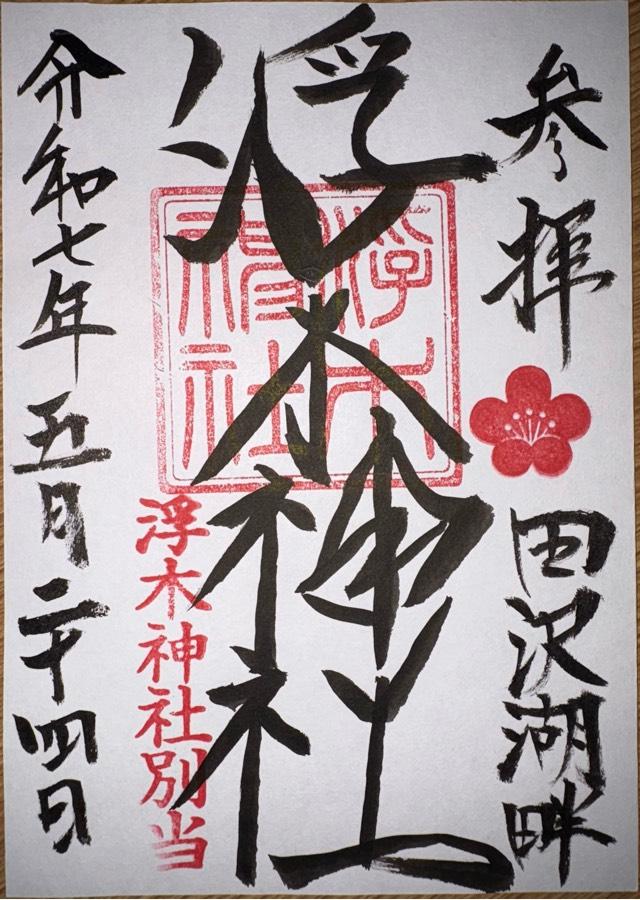 参拝
田沢湖畔
浮木神社
浮木神社
浮木神社別当
令和七年五月二十四日